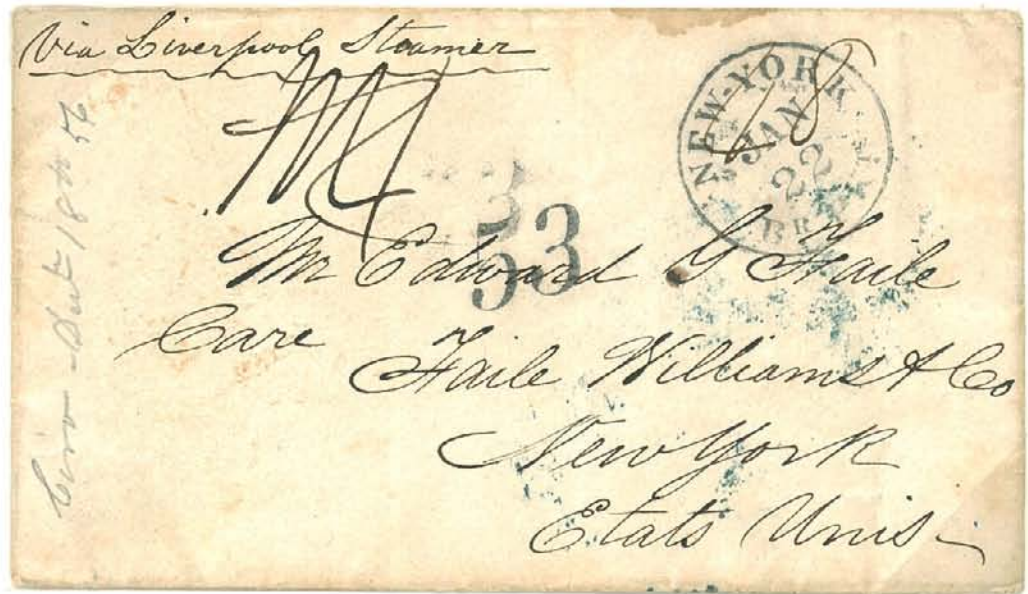 Via Liverpool Steamer
NEW-YORK
JAN
22
BR
33
Mr Edward G Faile
Care
Faile Williams & Co
New York
Etats Unis